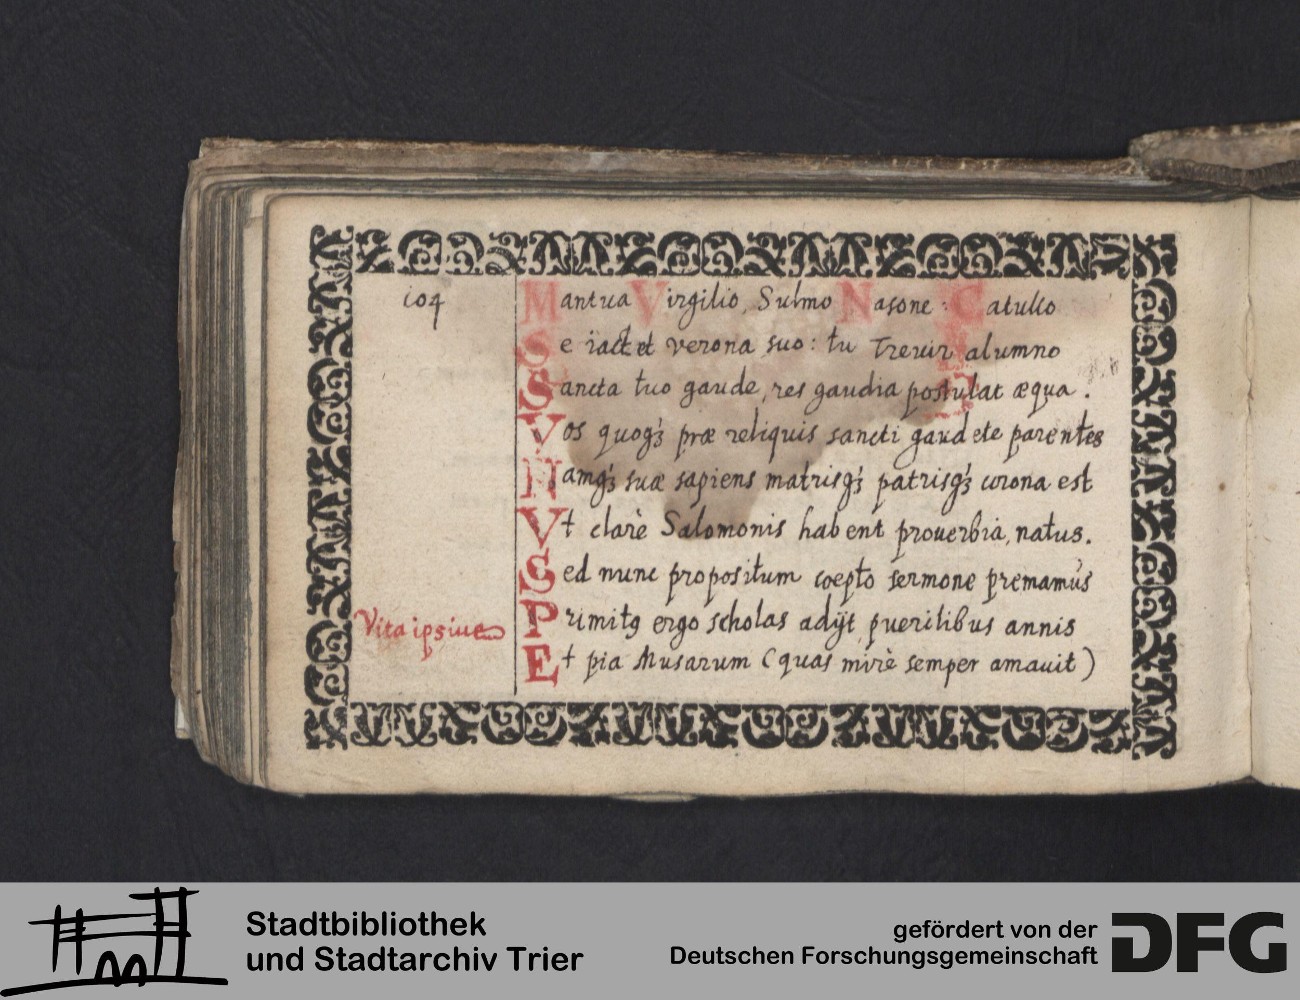 104
Mantua Virgilio, Sulmo Nasone: Catullo
Se iactet verona suo: tu Trevir alumno
Sancta tuo gaude, res gaudia postulat æqua.
Vos quoqꝫ præ reliquis sancti gaudete parentes
Namqꝫ suæ sapiens matrisqꝫ patrisqꝫ corona est
Vt clarè Salomonis habent prouerbia, natus.
Sed nunc propositum coepto sermone premamus
Vita ipsius
Primitꝰ ergo scholas adijt puerilibus annis
Et pia Musarum (quas mirè semper amauit)
Stadtbibliothek
und Stadtarchiv Trier
gefördert von der
Deutschen Forschungsgemeinschaft
DFG